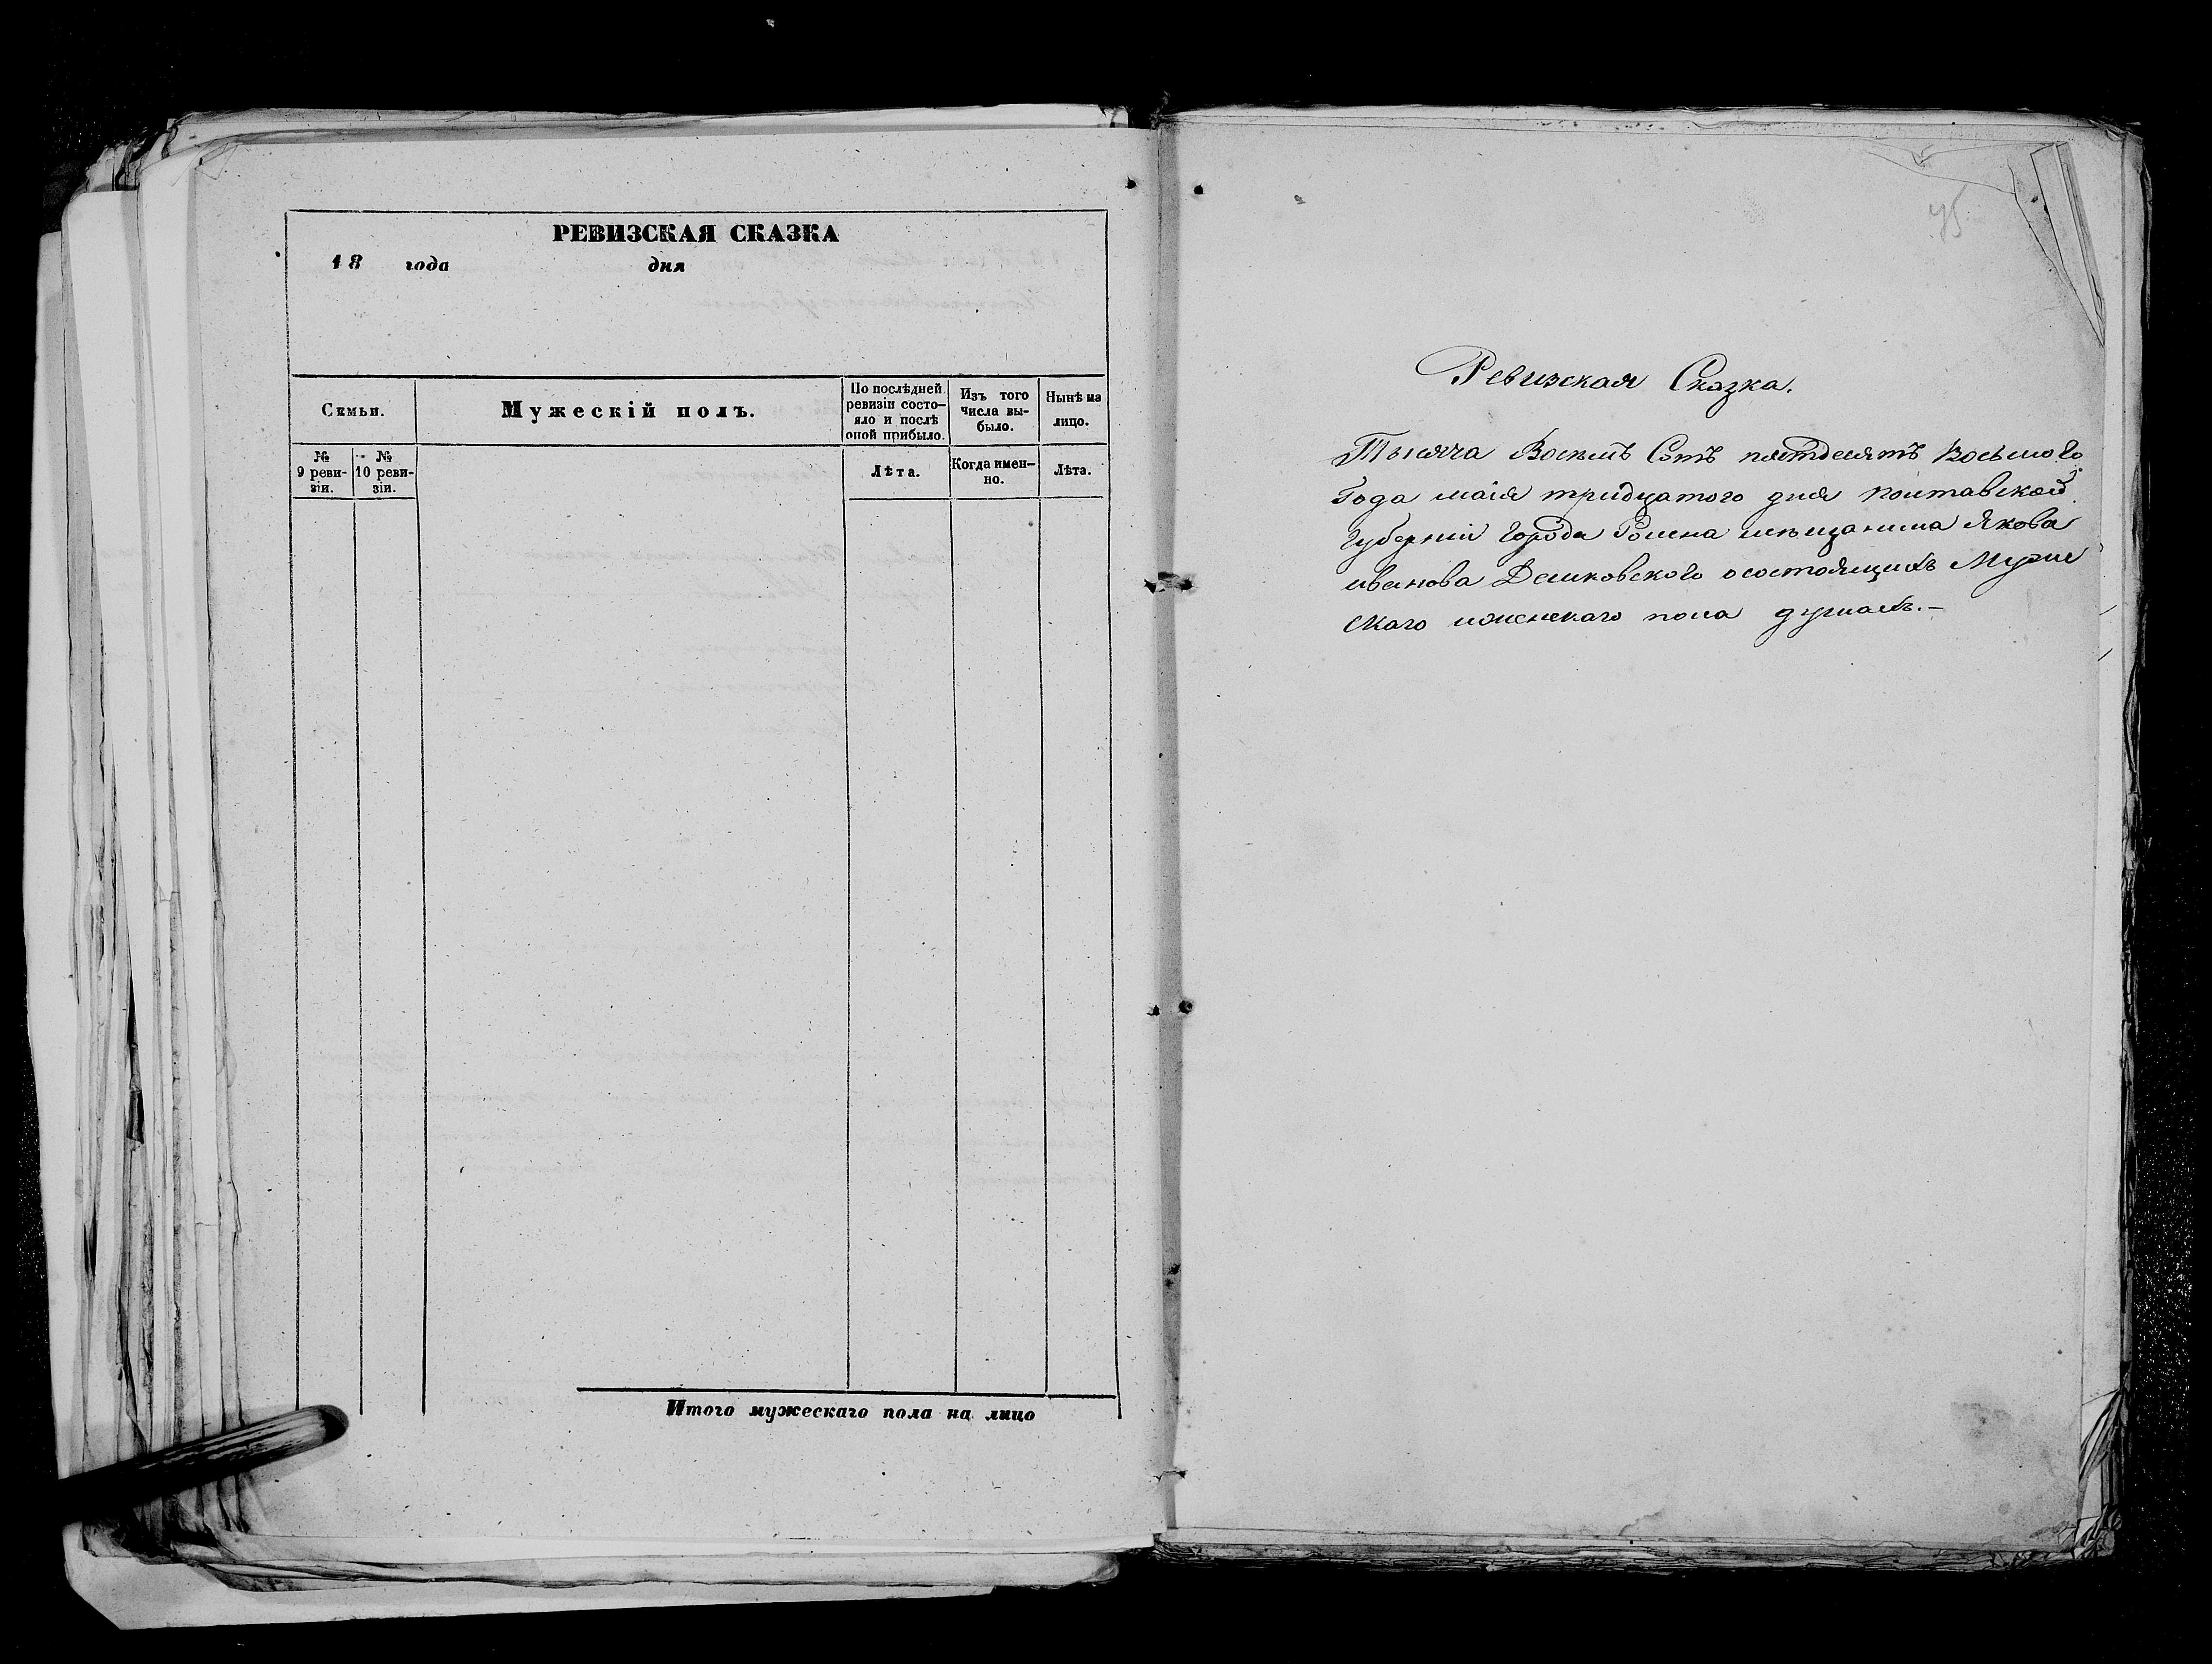 РЕВИЗСКАЯ СКАЗКА
18 года дня
Семьи.
Мужескій полъ.
По послѣдней
ревизіи состо-
яло и послѣ
оной прибыло.
Изъ того
числа вы-
было.
Нынѣ на
лицо.
№
9 реви-
зіи.
№
10 реви-
зіи.
Лѣта.
Когда имен-
но.
Лѣта.
Итого мужескаго пола на лицо
Ревизская Сказка.
Тысяча Восемъ Сотъ пятдесятъ Восьмого
Года маія тридцатого дня полтавской
Губерніи Города Ромена мещанина Якова
иванова осостоящихъ Муже
скаго иженскаго пола душахъ.—